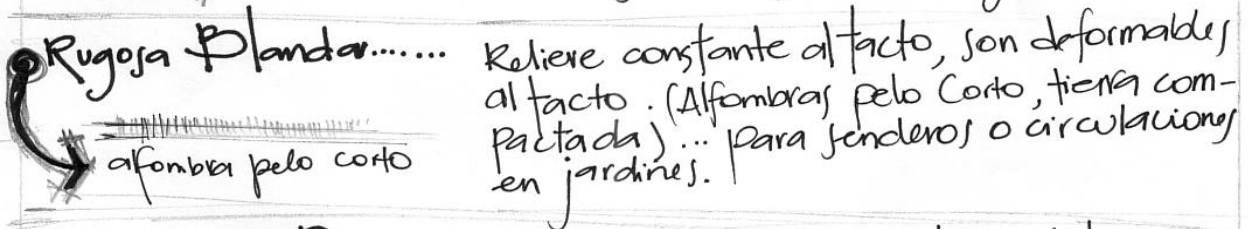 Rugosa Blanda.......
alfombra pelo corto
Relieve constante al tacto, son deformables
al tacto. (Alfombras pelo Corto, tierra com-
pactada)... para senderos o circulaciones
en jardines.